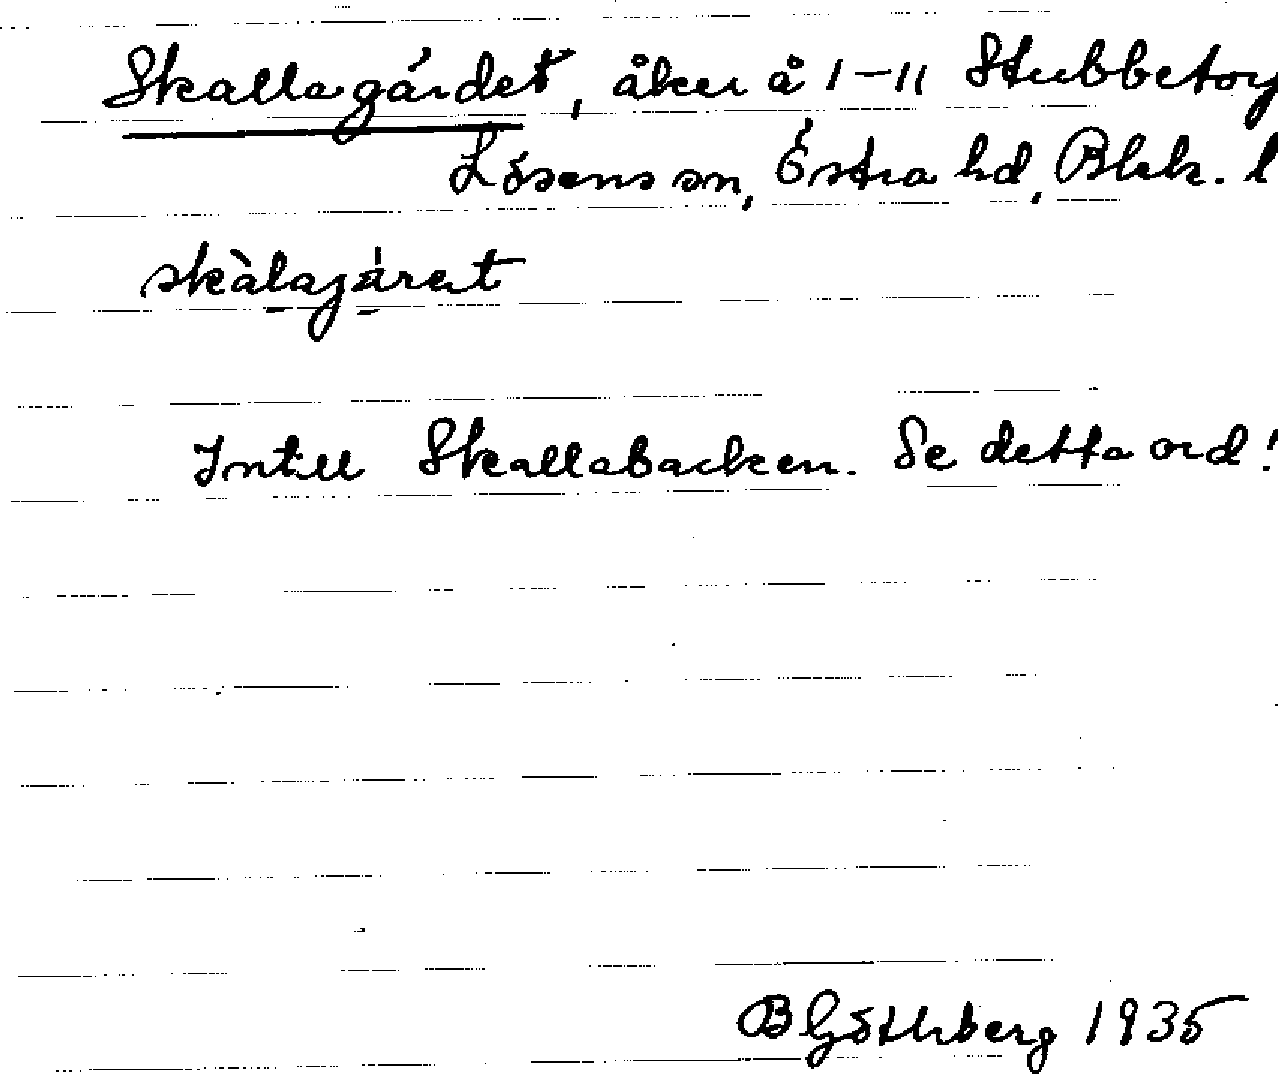 Skallagärdet, åker å 1-11 Stubbetorp
Lösens sn, Östra hd, Blek. l
skàlajáret
Intill Skallabacken. Se detta ord!
B Göthberg 1935